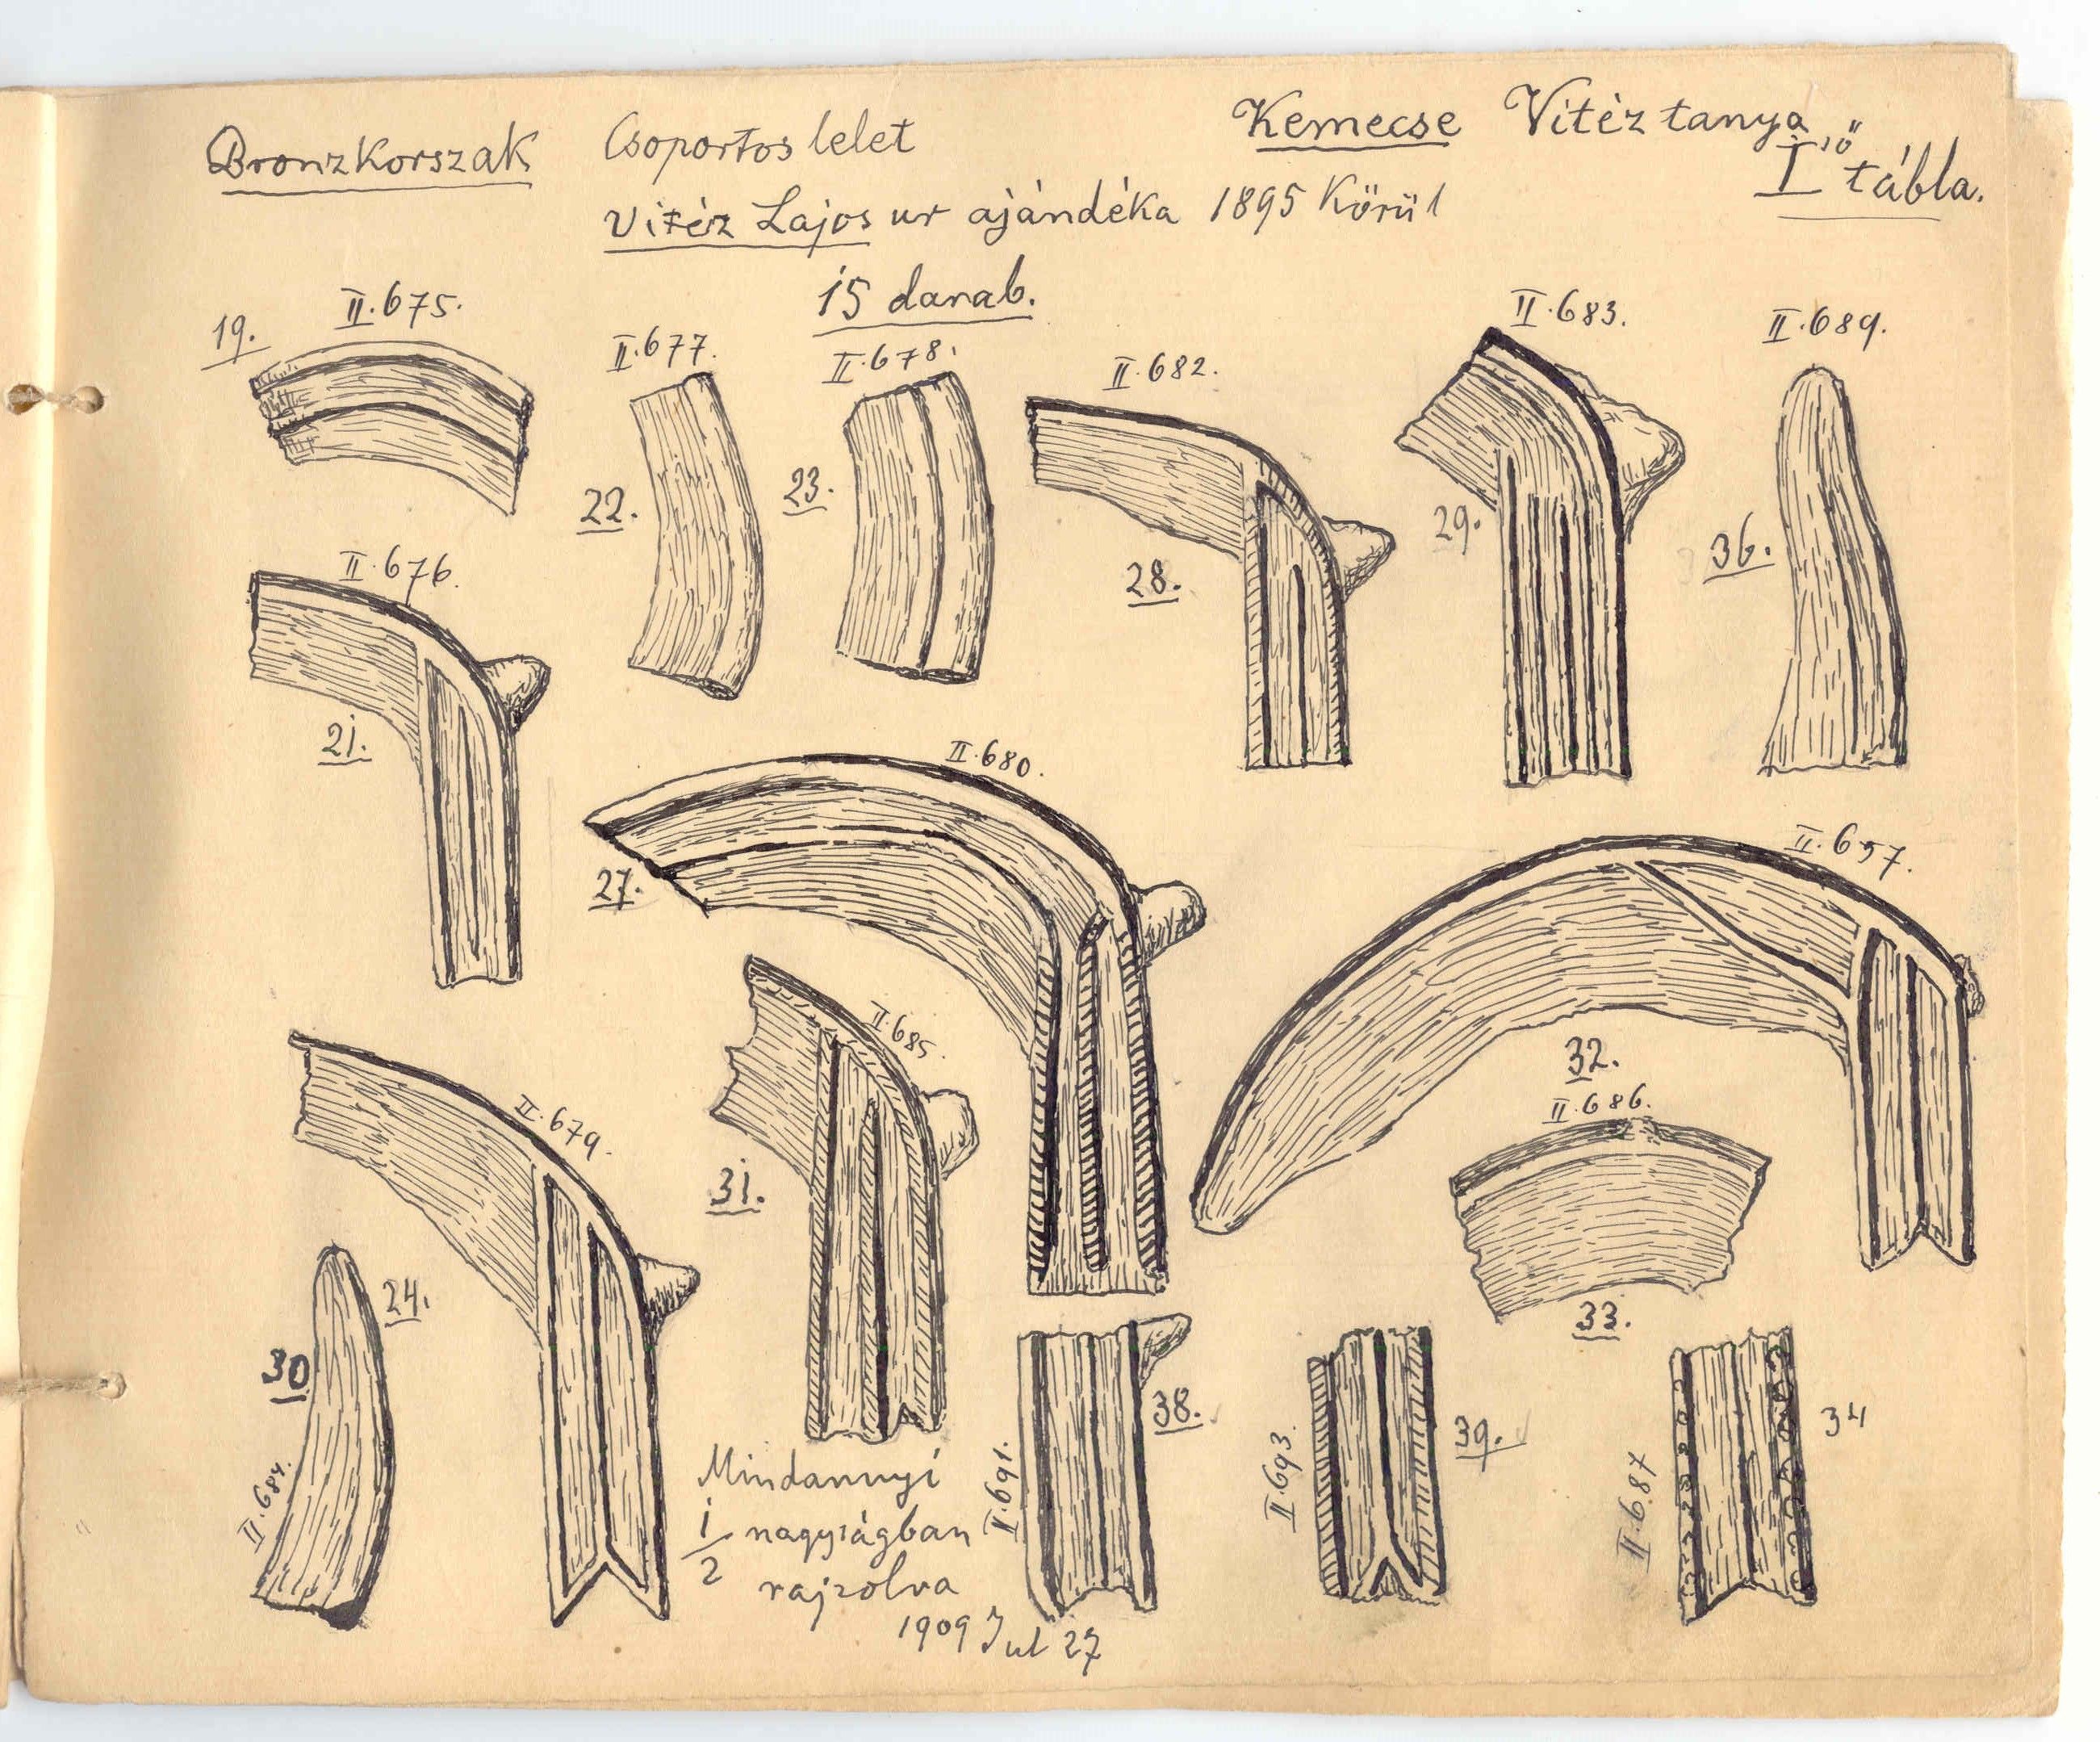 Bronzkorszak Csoportos lelet Kemecse Vitéz tanya
I ső tábla.
Vitéz Lajos ur ajándéka 1895 Körül
15 darab.
19. II.675.
II.677.
22.
II.678.
23.
II.682.
28.
II.683.
29.
II.689.
36.
II.676.
21.
II.680.
27.
II.657.
32.
II.679.
24.
II.685.
31.
II.686.
33.
30
II.684.
II.691.
38.
II.693.
39.
II.687
34
Mindannyi
1/2 nagyságban
rajzolva
1909 Jul 27